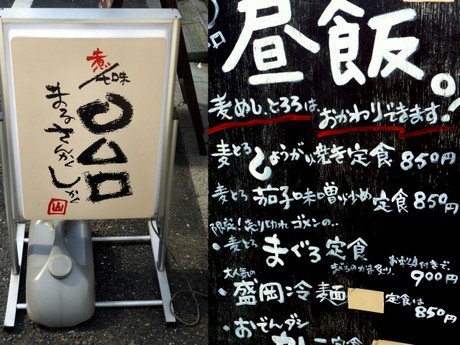 煮
味
○△□
まるさんかくしかく
山
昼飯。
麦めし、とろろは、おかわりできます。
麦とろ しょうがい焼き定食 850円
麦とろ 茄子味噌炒め定食 850円
限定!売り切れゴメンの。
・麦とろ まぐろ定食
900円
大人気の
・盛岡冷麺 定食は850円
・おでんダシ
カレー定食